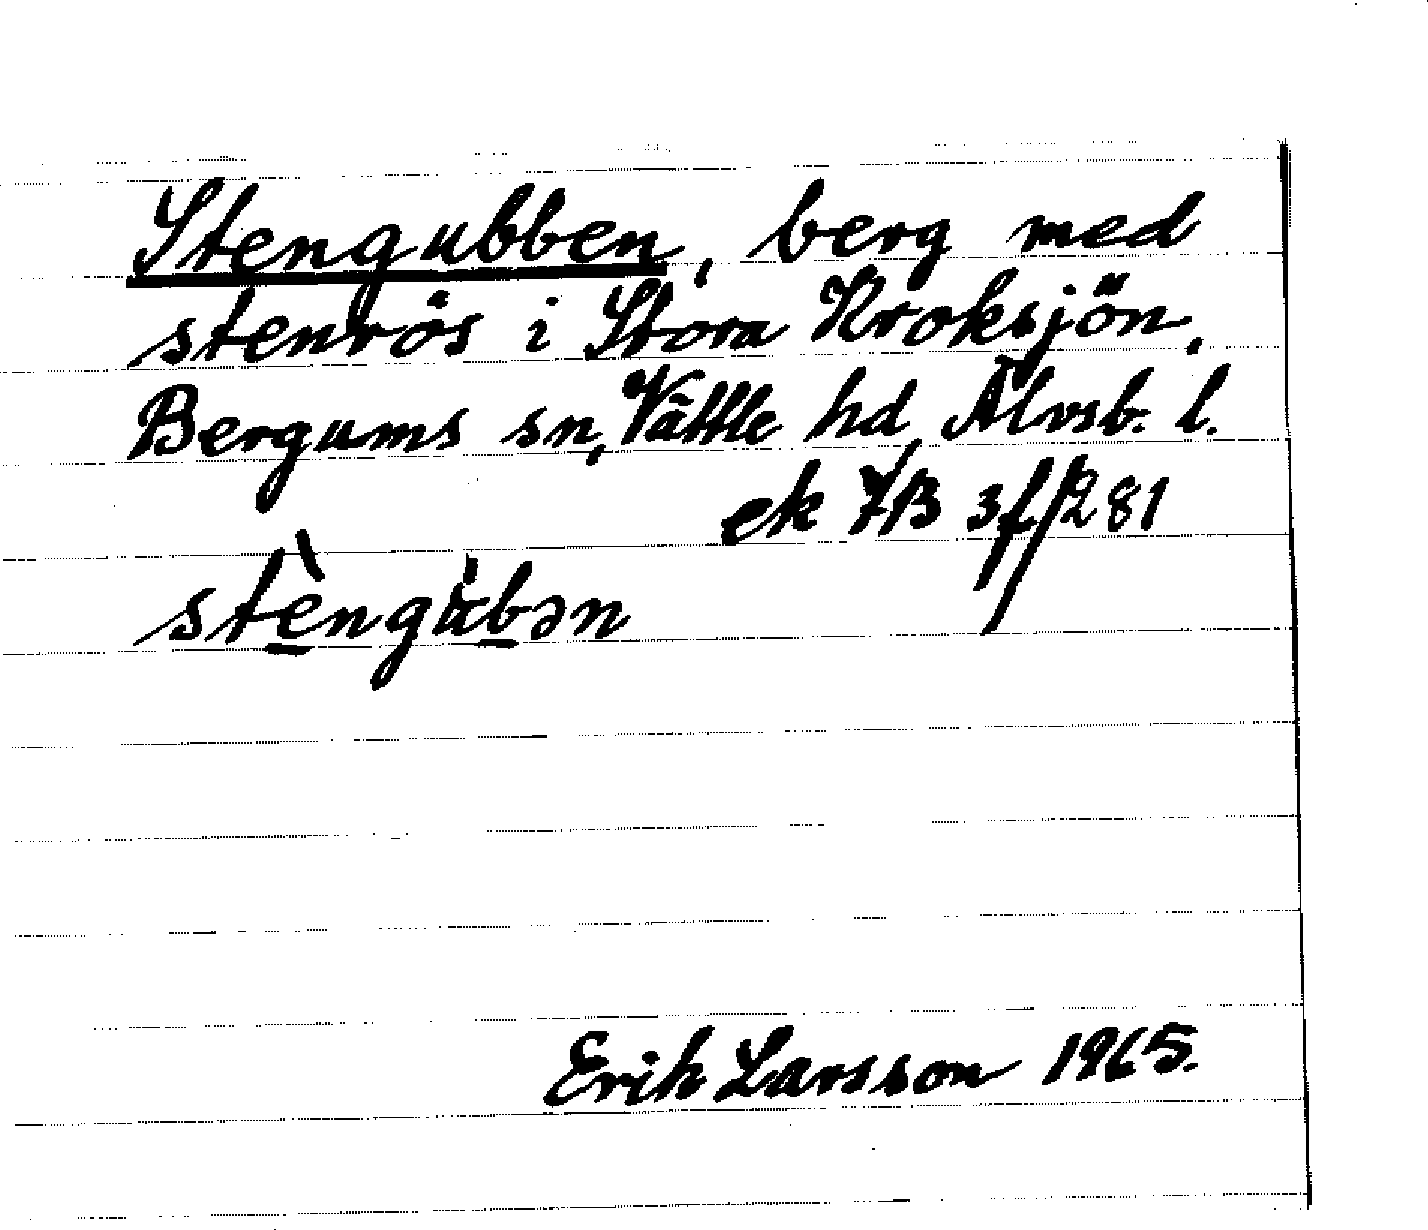 Stengubben, berg med
stenrös i Stora Kroksjön,
Bergums sn, Vättle hd, Älvsb. l.
ek 7B 3f/281
stèngùbən
Erik Larsson 1965.